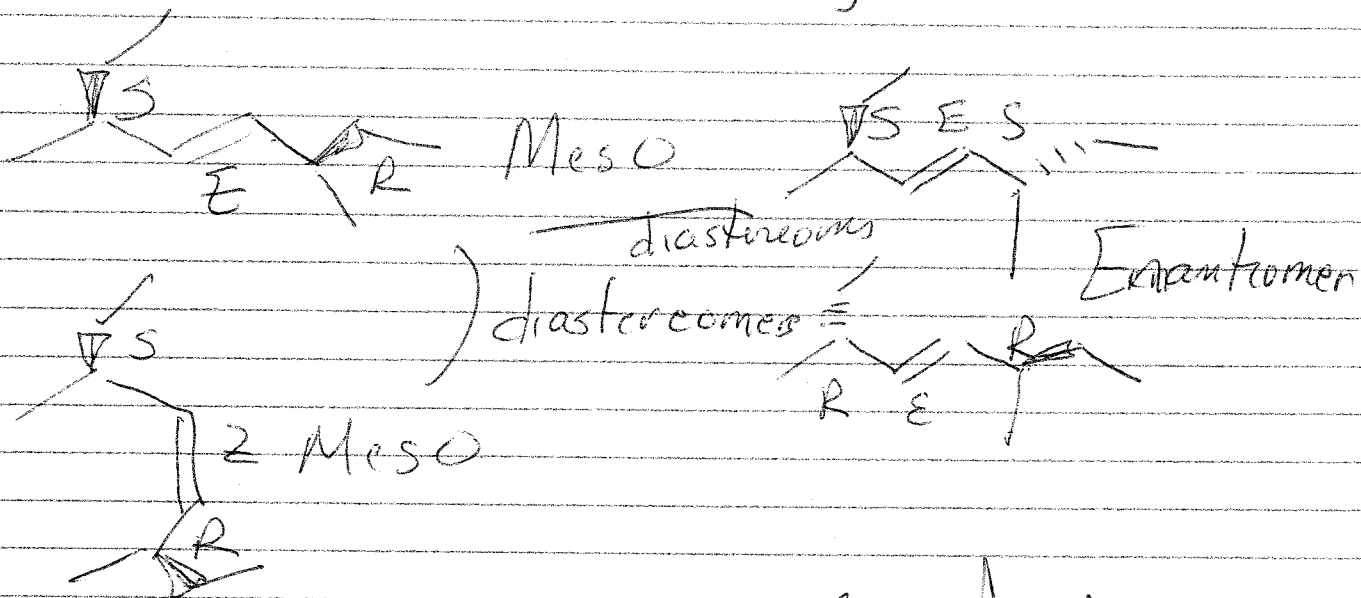 S
E R Meso
S E S
diastereoms
Enantiomer
S ) diastereomers
R E R
Z Meso
R